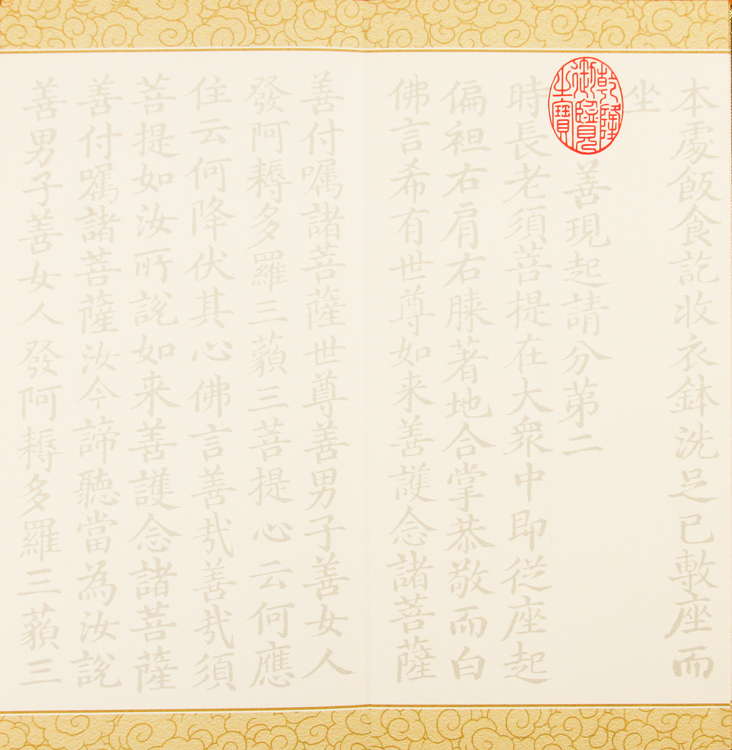 本處飯食訖收衣鉢洗足已敷座而
坐
乾隆御覽之寶
善現起請分第二
時長老須菩提在大衆中即從座起
偏袒右肩右膝著地合掌恭敬而白
佛言希有世尊如来善護念諸菩薩
善付囑諸菩薩世尊善男子善女人
發阿耨多羅三藐三菩提心云何應
住云何降伏其心佛言善哉善哉須
菩提如汝所說如来善護念諸菩薩
善付囑諸菩薩汝今諦聽當為汝說
善男子善女人發阿耨多羅三藐三